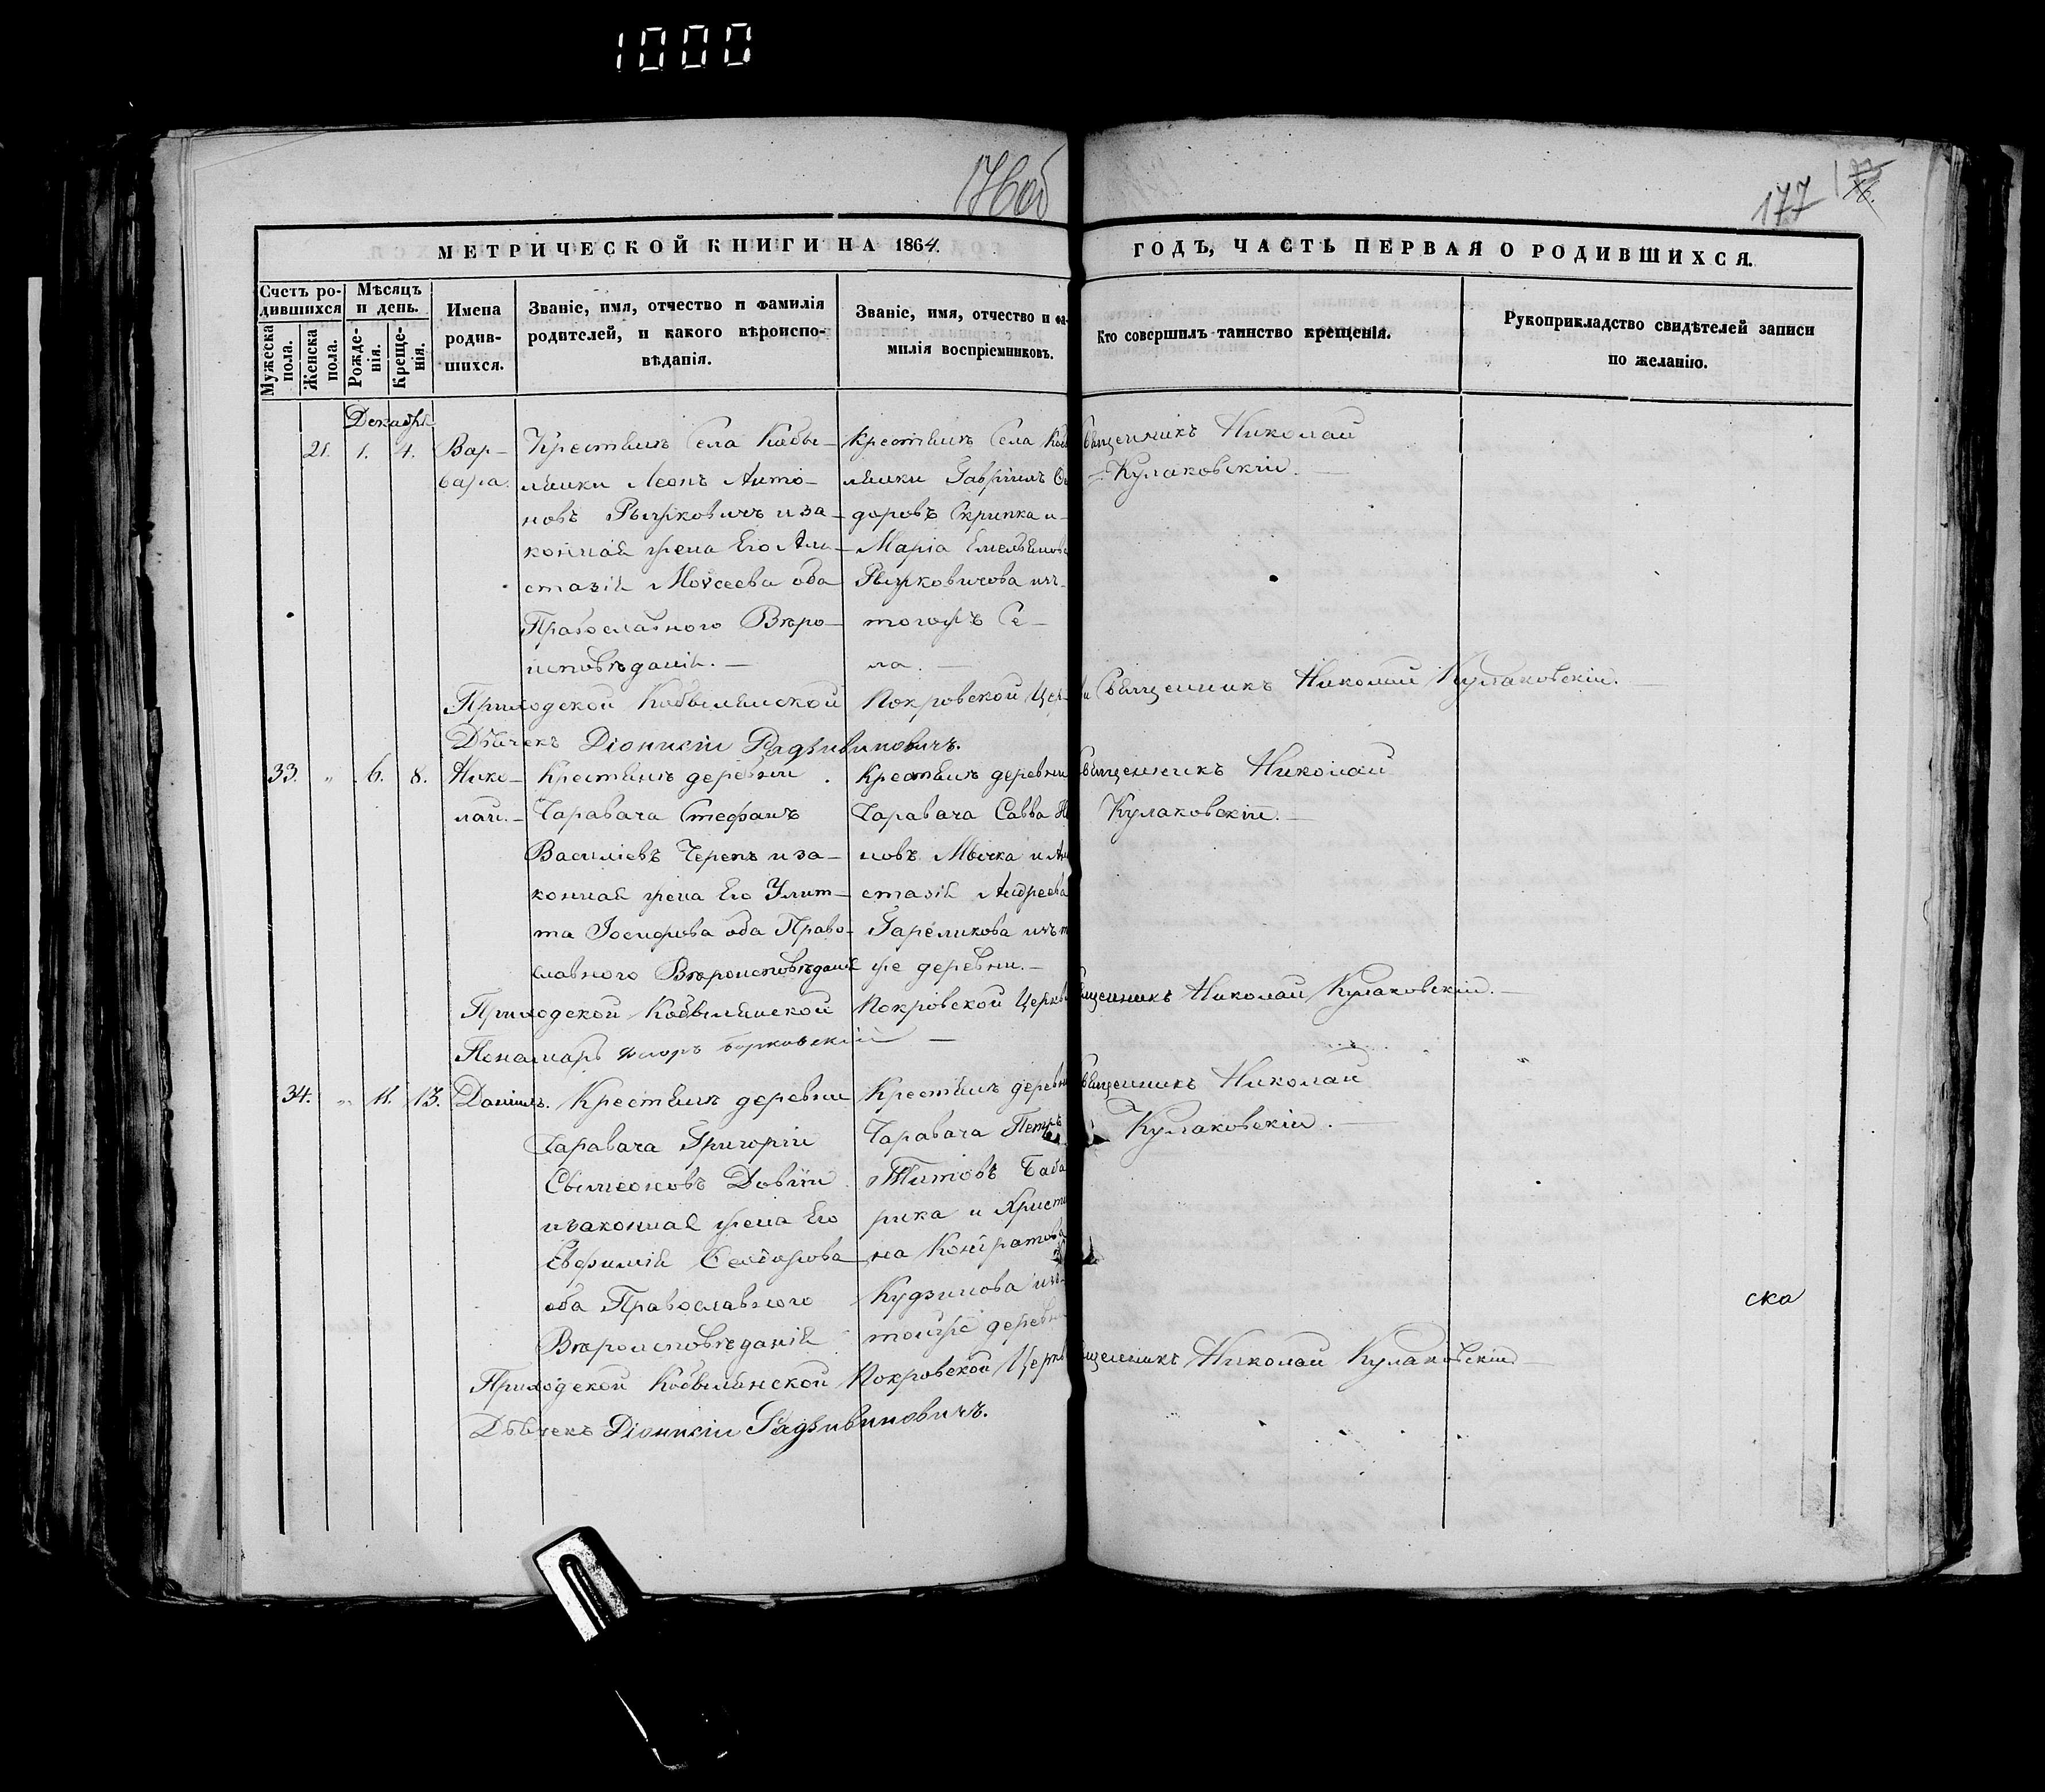 1000
176об
177
МЕТРИЧЕСКОЙ КНИГИ НА 1864.
ГОДЪ, ЧАСТЬ ПЕРВАЯ О РОДИВШИХСЯ.
Счетъ родившихся
Мужеска пола.
Женска пола.
Мѣсяцъ и день.
Рожденія.
Крещенія.
Имена родившихся.
Званіе, имя, отчество и фамилія
родителей, и какого вѣроиспо-
вѣданія.
Званіе, имя, отчество и фа-
милія воспріемниковъ.
Кто совершилъ таинство крещенія.
Рукоприкладство свидѣтелей записи
по желанію.
Декабрь
21. 1. 4. Вар-
вара.
Крестьянъ Села Кобы-
лянки Леонъ Анто-
новъ Рычковичъ и за-
конная жена Его Ана-
стазія Моѵсеева оба
Православного Вѣро-
исповѣданія.
Крестьянъ Села Коб
лянки Гавріилъ
доровъ Скрипка и
Марія Емельянова
Рычковичова изъ
тогожъ Се-
ла.
Священникъ Николай
Кулаковскій.
Приходской Кобылянской Покровской Церкви Священникъ Николай Кулаковскій.
Дьячекъ Діонисій Радзивиновичъ.
33. " 6. 8. Нико-
лай.
Крестьянъ деревни
Чаравача Стефанъ
Василіевъ Черепъ и за-
конная жена Его Улит-
та Іосифова оба Право-
славного Вѣроисповѣданія
Крестьянъ деревни
Чаравача Савва
новъ Мычка и Ана
стазія Андреева
Гареликова изъ т
же деревни.
Священникъ Николай
Кулаковскій.
Приходской Кобылянской Покровской Церкви Священникъ Николай Кулаковскій.
Понамарь Флоръ Борковскій
34. " 11. 13. Даніилъ.
Крестьянъ деревни
Чаравача Григорій
Сѵмеоновъ Довгій
и законная жена Его
Евфимія
оба Православного
Вѣроисповѣданія
Крестьянъ деревни
Чаравача Петръ
Титовъ Баба
рика и Христи
на Кондратова
Кудзинова изъ
тойже деревни
Священникъ Николай
Кулаковскій.
ска
Приходской Кобылянской Покровской Церкви Священникъ Николай Кулаковскій
Дьячекъ Діонисій Радзивиновичъ.